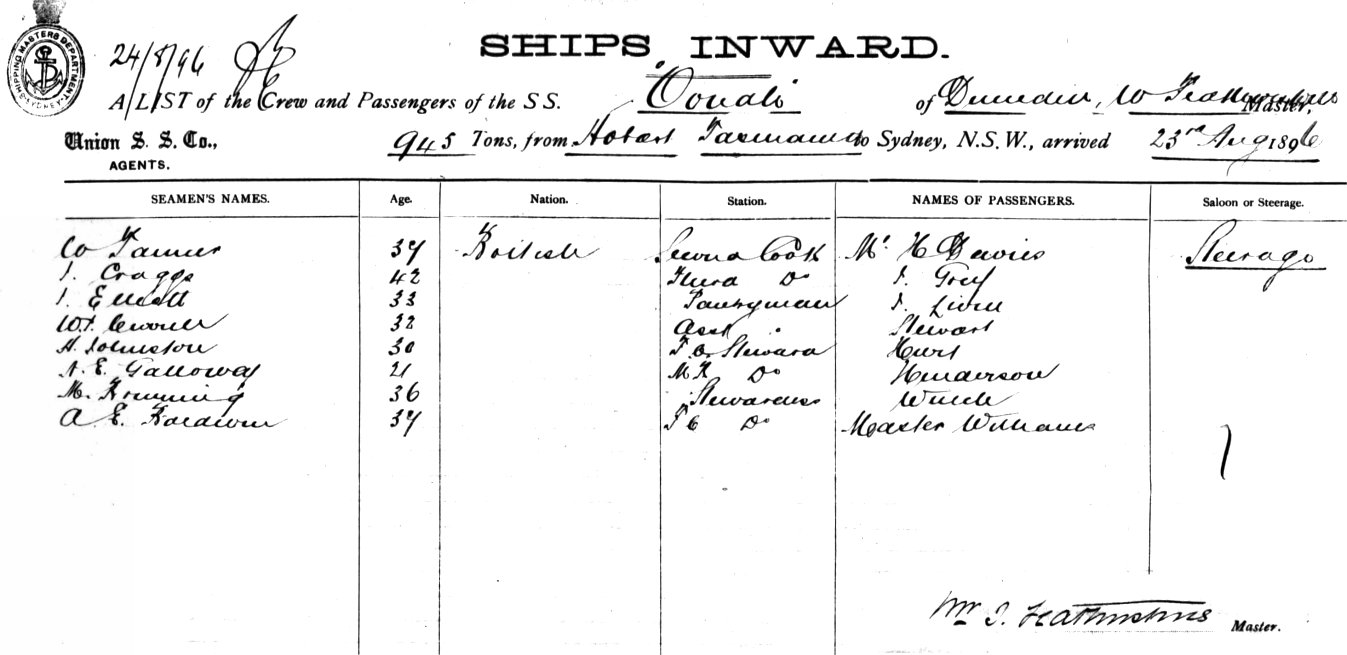 SHIPPING MASTERS DEPARTMENT SYDNEY
24/8/96
SHIPS INWARD.
A LIST of the Crew and Passengers of the S.S. Oonah of Dunedin, W Featherstone Master,
Union S. S. Co., 945 Tons, from Hobart Tasmania to Sydney, N.S.W., arrived 23rd Aug 1896
AGENTS.
SEAMEN'S NAMES. Age. Nation. Station. NAMES OF PASSENGERS. Saloon or Steerage.
W Tanner 37 British Second Cook Mr H Davies Steerage
J. Craggs 42 Third Do J. Grey
J. Elliott 33 Pantryman J.
W.J. 32 Asst " Stewart
H. Johnston 30 F.C. Steward Hurt
A. E. Galloway 21 M R Do Henderson
M. 36 Stewardess
A. E. Baldwin 37 F C Do Master Williams
Master.